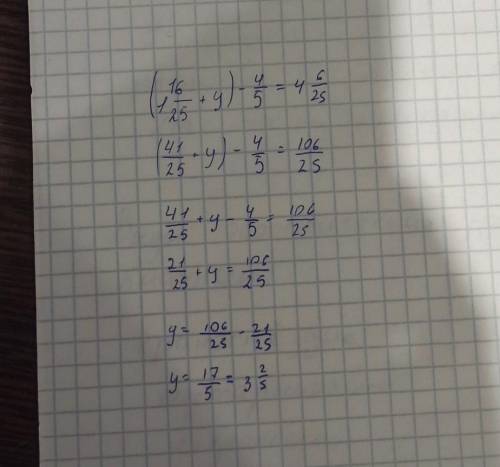 (1 16/25 + y) - 4/5 = 4 6/25
(41/25 + y) - 4/5 = 106/25
41/25 + y - 4/5 = 106/25
21/25 + y = 106/25
y = 106/25 - 21/25
y = 17/5 = 3 2/5